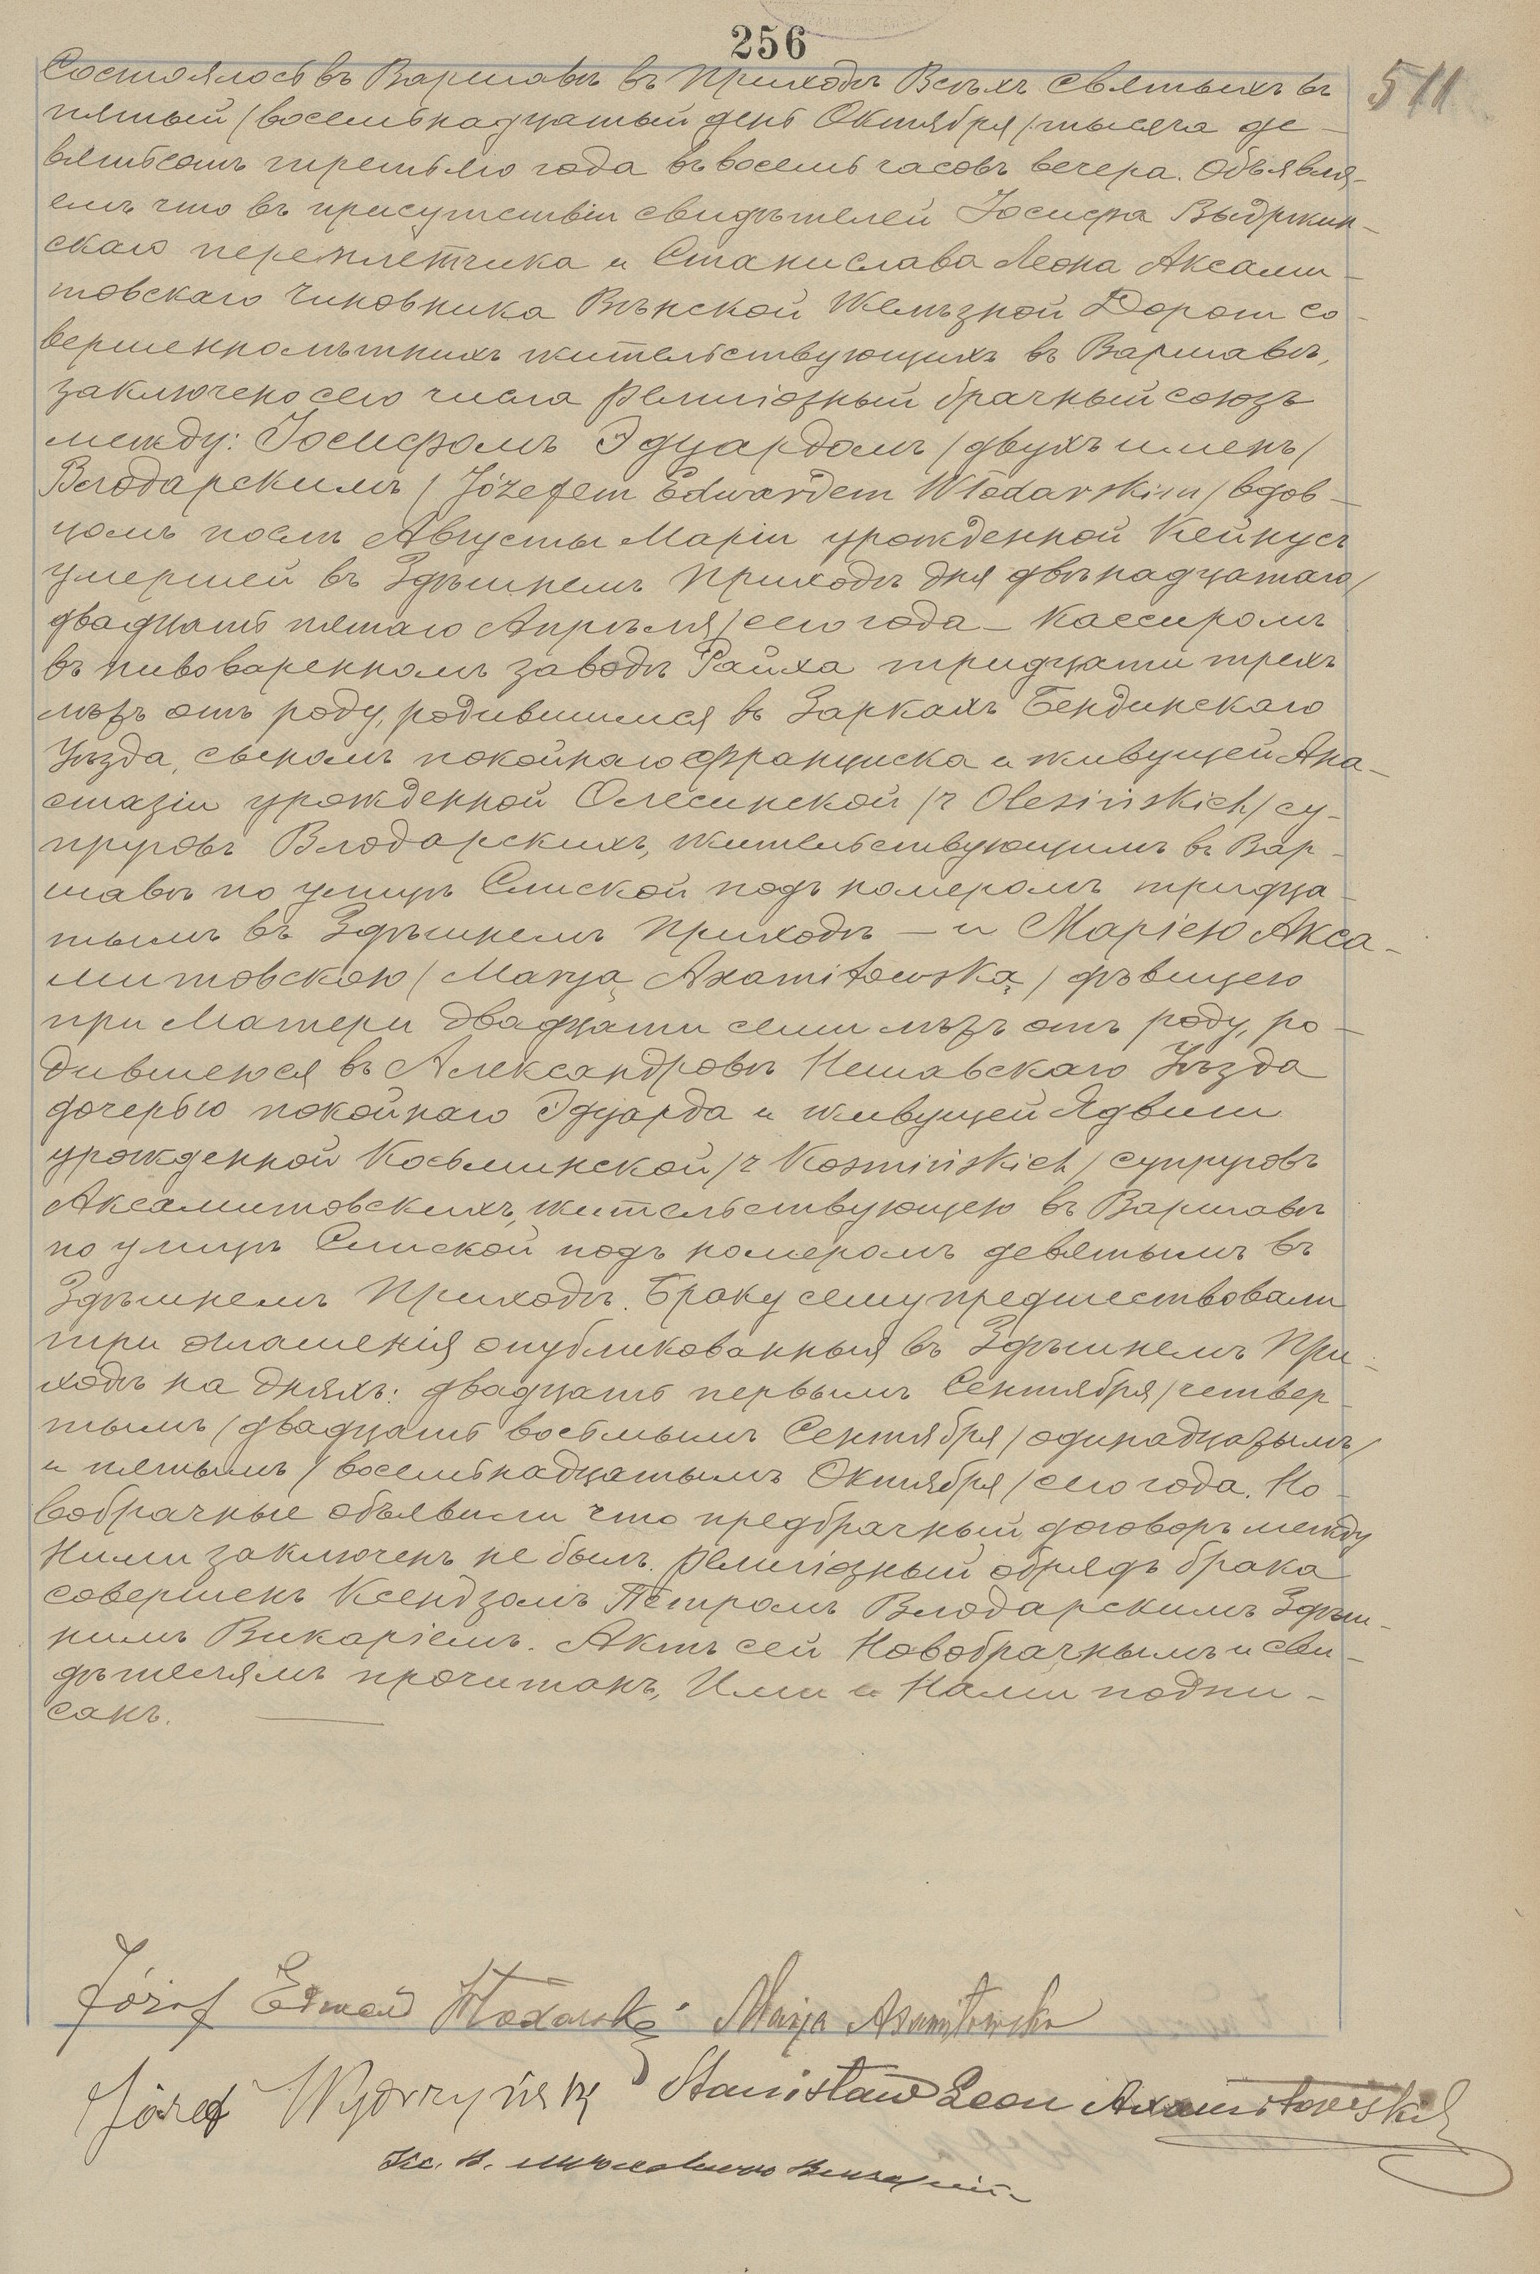 256
511
Состоялось въ Варшавѣ въ Приходѣ Всѣхъ Святыхъ въ
пятый /восемьнадцатый день Октября/ тысяча де-
вятьсотъ третьяго года въ восемь часовъ вечера. Объявля-
емъ что въ присутствіи свидѣтелей Іосифа Выдржин-
скаго переплетчика и Станислава Леона Аксами-
товскаго Чиновника Вѣнской Желѣзной Дороги со-
вершеннолѣтнихъ жительствующихъ въ Варшавѣ,
заключено сего числа религіозный брачный союзъ
между: Іосифомъ Эдуардомъ /двухъ именъ/
Влодарскимъ /Józefem Edwardem Włodarskim/ вдов-
цомъ послѣ Августы Маріи урожденной Кейнусъ
умершей въ Здѣшнемъ Приходѣ дня двѣнадцатаго/
двадцать пятаго Апрѣля/ сего года – Кассиромъ
въ пивоваренномъ заводѣ Райха тридцати трехъ
лѣтъ отъ роду, родившимся въ Заркахъ Бендинскаго
Уѣзда, сыномъ покойнаго Франциска и живущей Ана-
стазіи урожденной Олесинской /z Olesińskich/ су-
пруговъ Влодарскихъ, жительствующимъ въ Вар-
шавѣ по улицѣ Слиской подъ номеромъ тридца-
тымъ въ Здѣшнемъ Приходѣ – и Маріею Акса-
митовскою /Maryą Axamitowską/ дѣвицею
при Матери двадцати семи лѣтъ отъ роду, ро-
дившеюся въ Александровѣ Нешавскаго Уѣзда
дочерью покойнаго Эдуарда и живущей Ядвиги
урожденной Косьминской /z Kosmińskich/ супруговъ
Аксамитовскихъ, жительствующею въ Варшавѣ
по улицѣ Слиской подъ номеромъ девятымъ въ
Здѣшнемъ Приходѣ. Браку сему предшествовали
три оглашенія опубликованныя въ Здѣшнемъ При-
ходѣ на дняхъ: двадцать первымъ Сентября /четвер-
тымъ/ двадцать восьмымъ Сентября /одинадцатымъ/
и пятымъ /восемьнадцатымъ Октября/ сего года. Но-
вобрачные объявили что предбрачный договоръ между
Ними заключенъ не былъ. Религіозный обрядъ брака
совершенъ Ксендзомъ Петромъ Влодарскимъ Здѣш-
нимъ Викаріемъ. Актъ сей Новобрачнымъ и сви-
дѣтелямъ прочитанъ, Ими и Нами подпи-
санъ.
Józef Edward Włodarski Marja Axamitowska
Józef Wydrzyński Stanisław Leon Axamitowski
Кс.